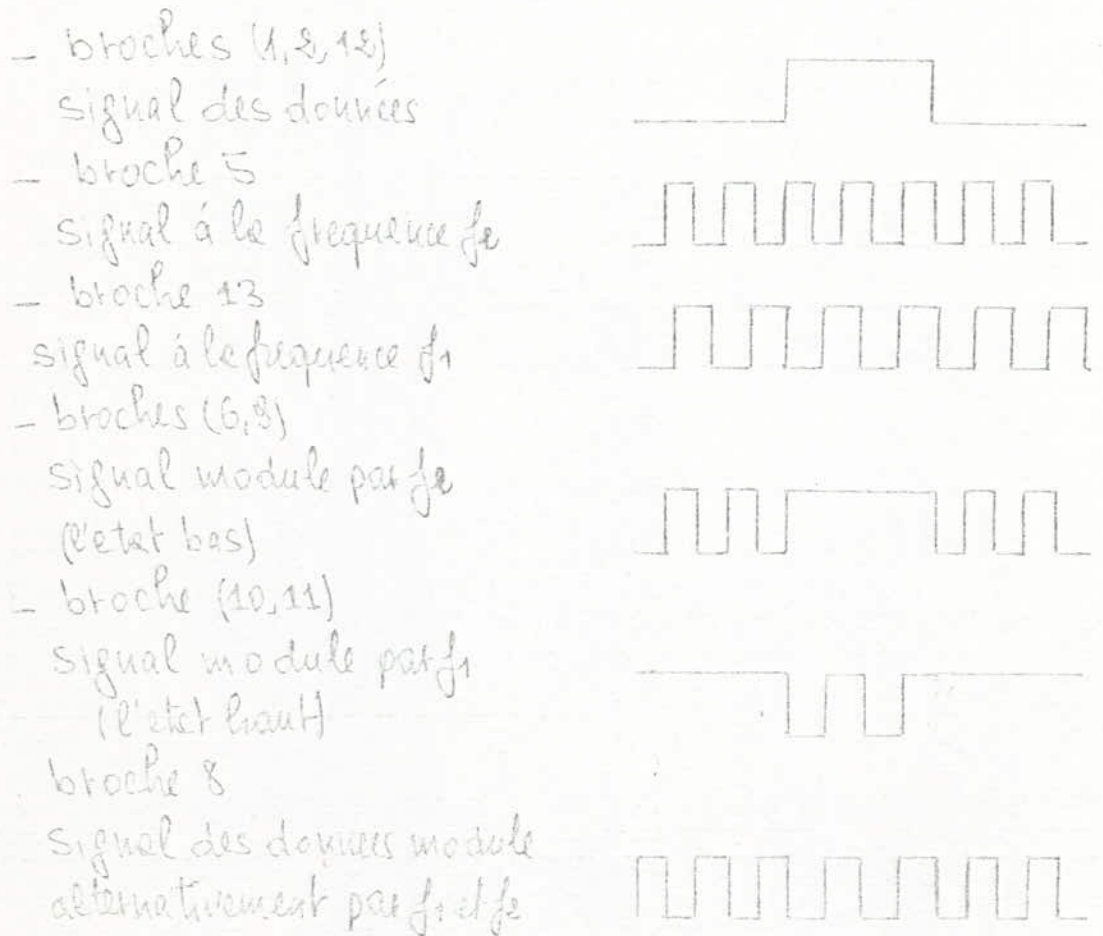 - broches (1,2,12)
signal des données
- broche 5
signal á la frequence f2
- broche 13
signal á la frequence f1
- broches (6,9)
signal module par f2
(l'etat bas)
- broche (10,11)
signal module par f1
(l'etat haut)
broche 8
signal des donnees module
alternativement par f1 et f2